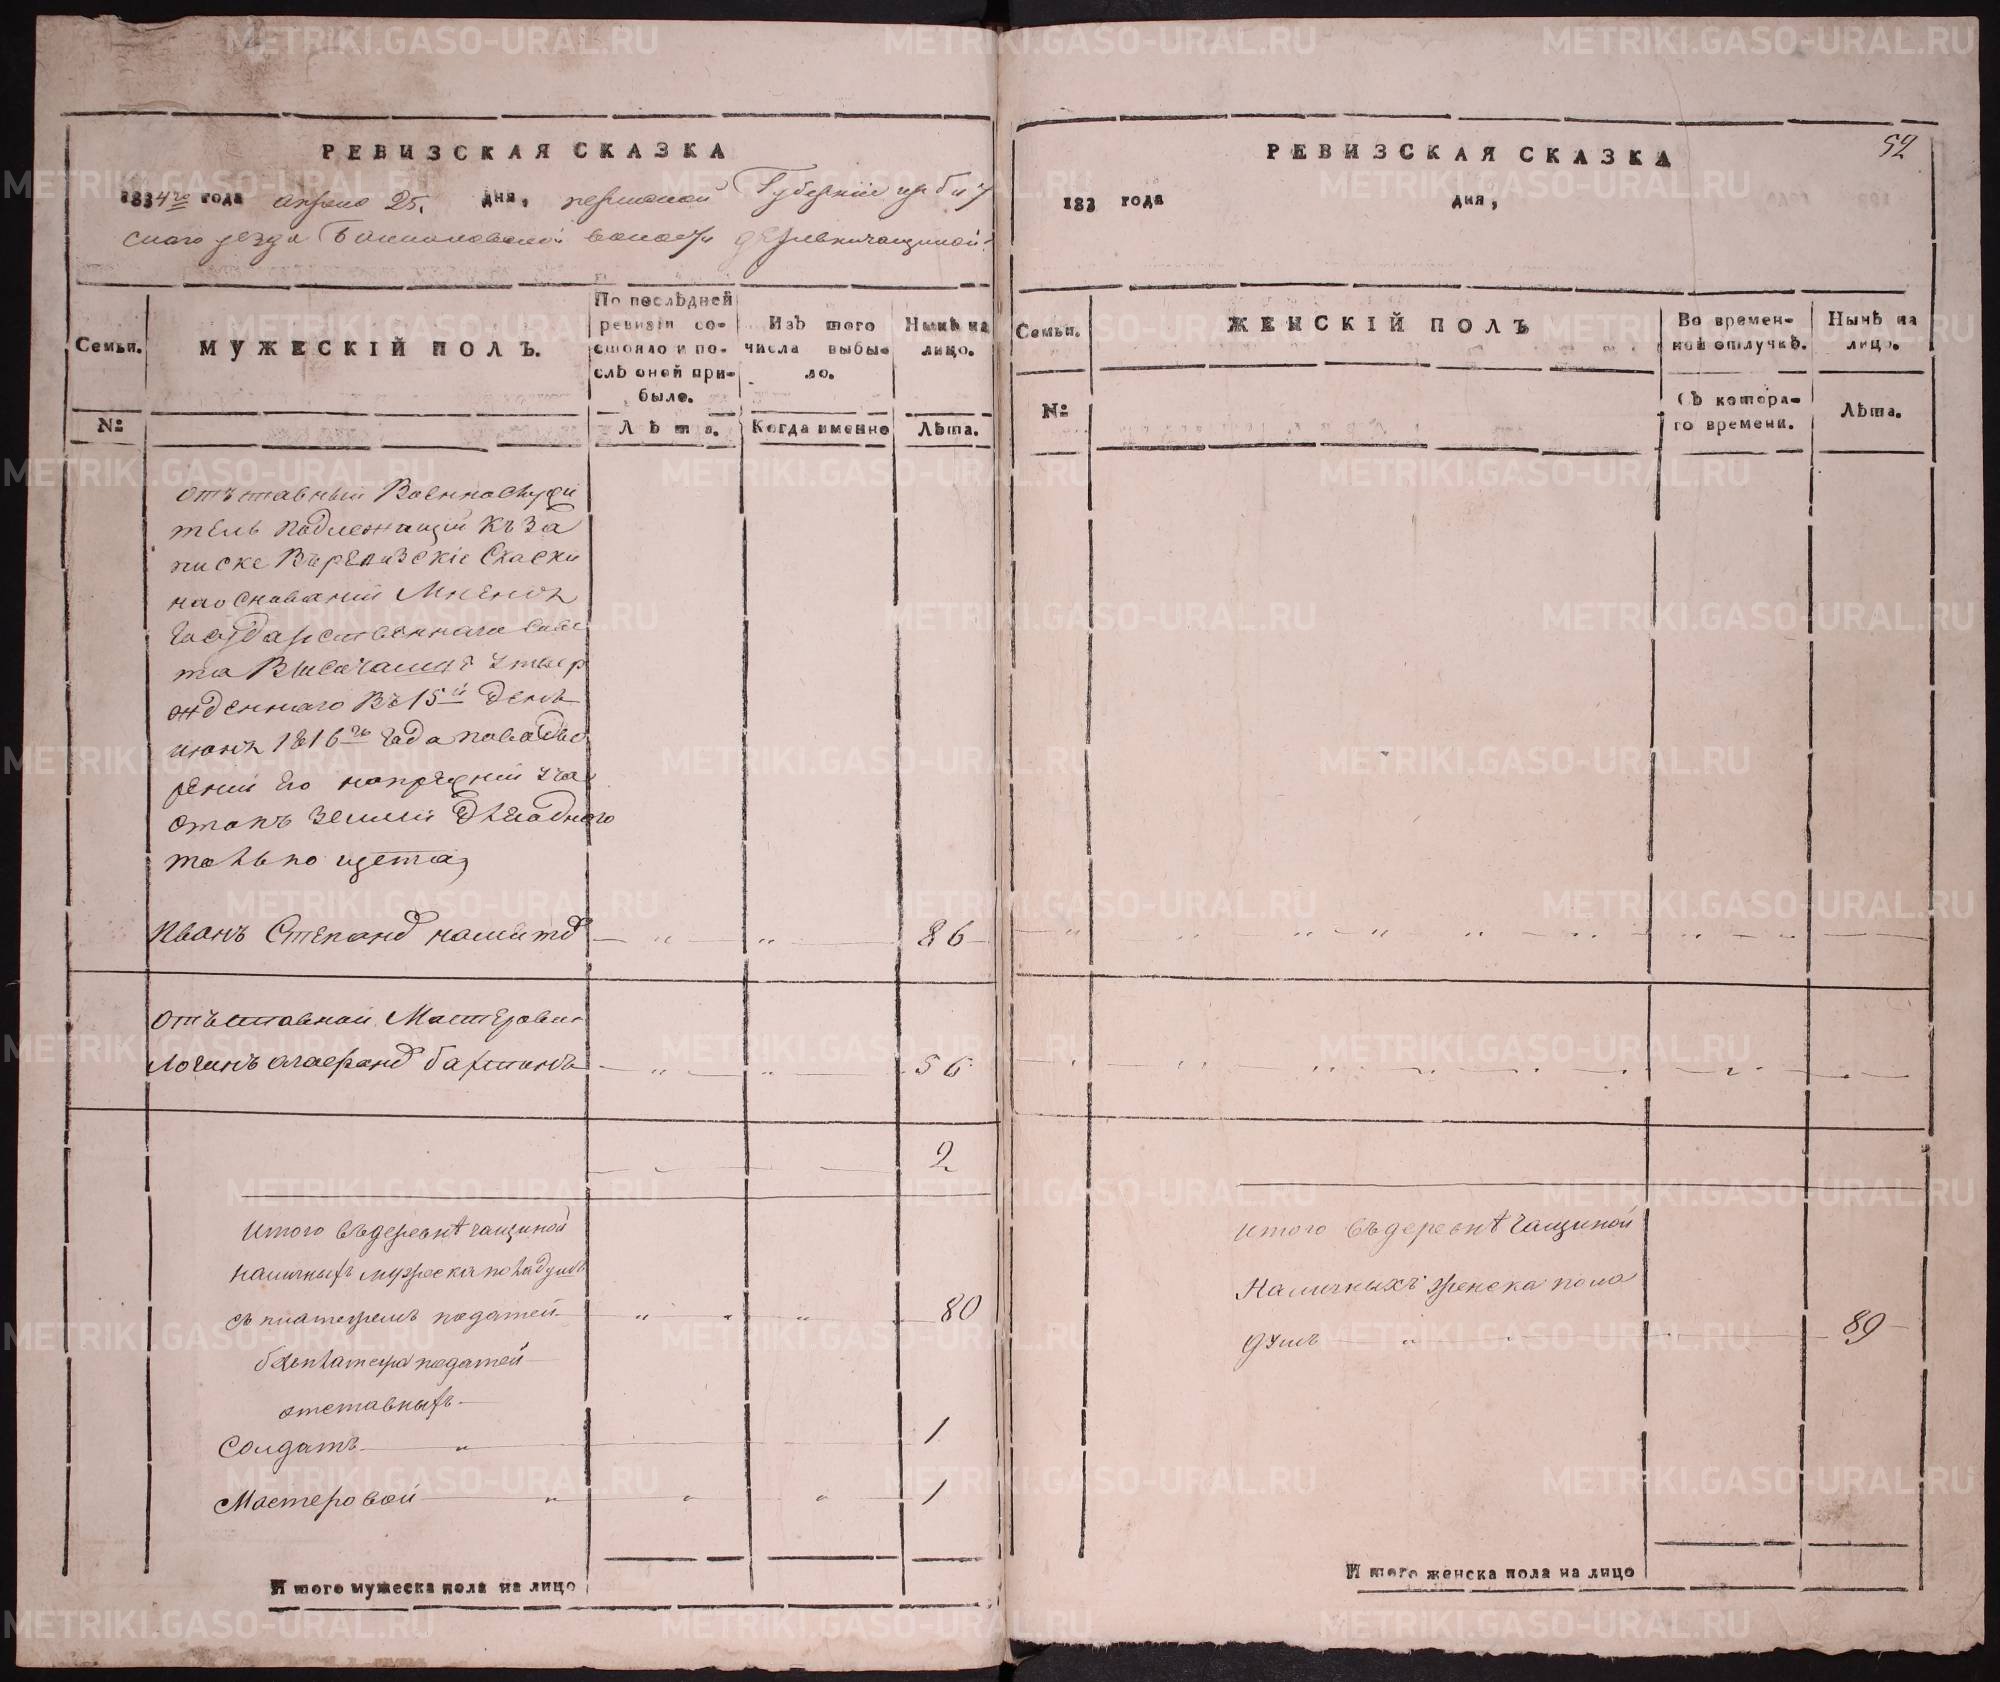 РЕВИЗСКАЯ СКАЗКА
1834го года апреля 25. дня, пермской Губернии ирбит
скаго уезда волости деревни чащиной
Семьи. МУЖЕСКІЙ ПОЛЪ. По послѣдней ревизіи состояло и послѣ оной прибыло. Изъ того числа выбыло. Нынѣ на лицо.
№ Лѣта. Когда именно Лѣта.
отъставный Военнослужи
тель подлежащий къ За
писке Въ ревизские Скаски
на основании Мнения
Государственнаго Сове
та Высочаише утвер
жденнаго Въ 15й День
июня 1816го года
рении его
земли
только щета,
Иванъ Степановъ 86
отъставной Мастеровои
Логинъ 56
2
итого въ деревнѣ чащиной
наличныхъ мужеска пола душъ
съ платежемъ податей 80
безъ платежа податей
отставныхъ
Солдатъ 1
Мастеровой 1
Итого мужеска пола на лицо
52
РЕВИЗСКАЯ СКАЗКА
183 года дня,
Семьи. ЖЕНСКІЙ ПОЛЪ Во временной отлучкѣ. Нынѣ на лицо.
№ Съ котораго времени. Лѣта.
итого въ деревнѣ чащиной
Наличныхъ женска пола
душъ 89
Итого женска пола на лицо
METRIKI.GASO-URAL.RU